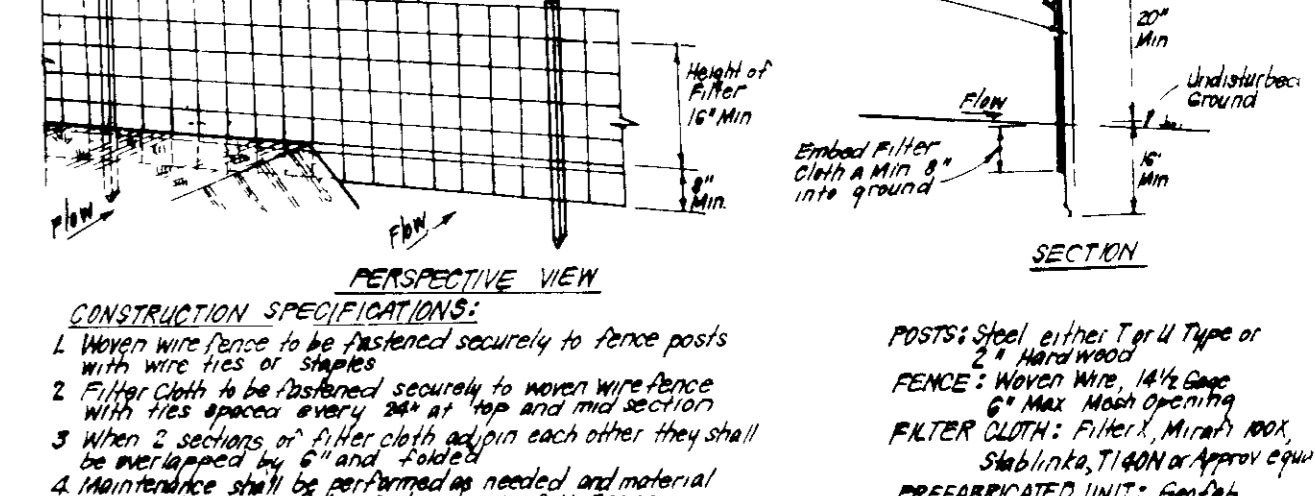 Height of
Filter
16" Min
8"
Min.
Flow
Flow
PERSPECTIVE VIEW
20"
Min
Undisturbed
Ground
Flow
Embed Filter
Cloth a Min 8"
into ground
16"
Min
SECTION
CONSTRUCTION SPECIFICATIONS:
1. Woven wire fence to be fastened securely to fence posts
with wire ties or staples
2 Filter Cloth to be fastened securely to woven wire fence
with ties spaced every 24" at top and mid section
3 When 2 sections of filter cloth adjoin each other they shall
be overlapped by 6" and folded
4 Maintenance shall be performed as needed and material
POSTS: Steel either T or U Type or
2" Hardwood
FENCE: Woven Wire, 14½ Gage
6" Max Mesh Opening
FILTER CLOTH: Filter X, Mirafi 100X,
Stablinka, T140N or Approv equ
PREFABRICATED UNIT: Geofab